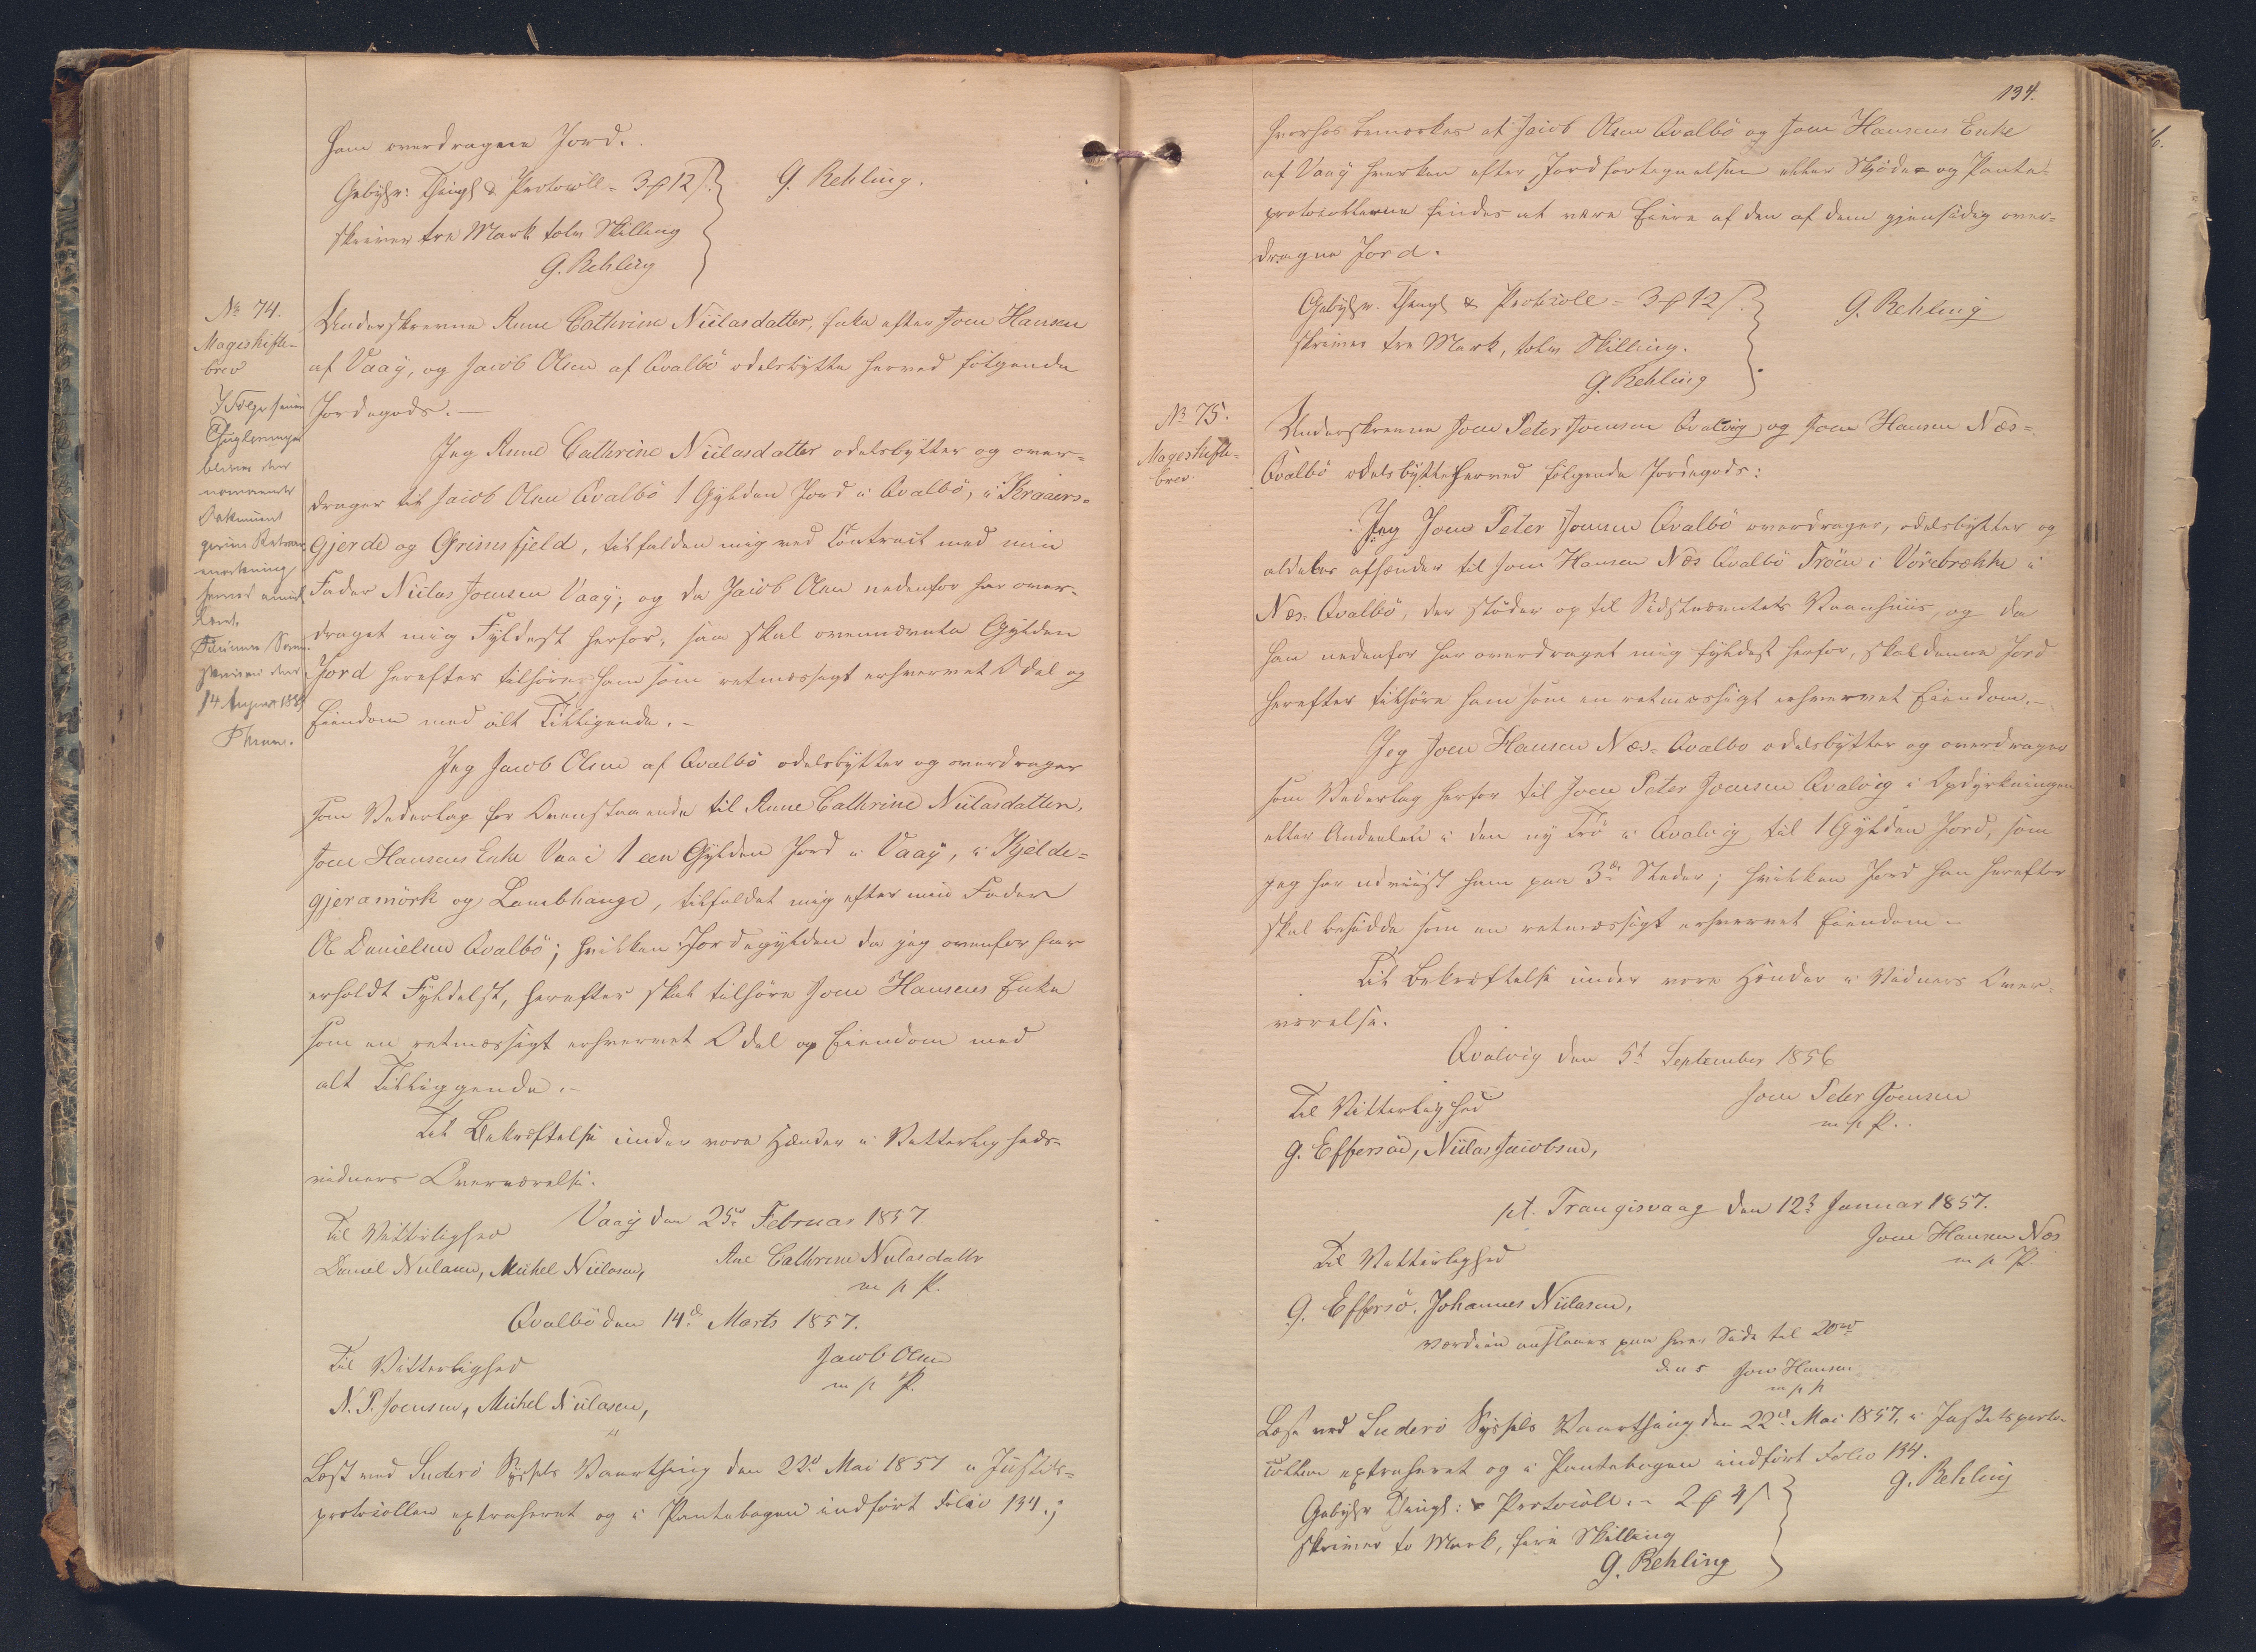 ham overdragne Jord.
Gebyhr: Thingl & Protocoll = 3 ₰ 12 ß.
skriver tre Mark tolv Skilling
G. Rehling
G. Rehling.
No 74.
Mageskifte-
brev
Underskrevne Anne Cathrine Niclasdatter, Enke efter Joen Hansen
af Vaag, og Jacob Olsen af Qvalbö odelsbytte herved følgende
Jordegods. —
Jeg Anne Cathrine Niclasdatter odelsbytter og over-
drager til Jacob Olsen Qvalbö 1 Gylden Jord i Qvalbö, i Kraaers-
gjerde og Grimsfjeld, tilfalden mig ved Contract med min
Fader Niclas Joensen Vaag; og da Jacob Olsen nedenfor har over-
draget mig Fyldest herfor, saa skal ovennævnte Gylden
Jord herefter tilhøre ham som retmæssigt erhvervet Odel og
Eiendom med alt Tilliggende. -
Jeg Jacob Olsen af Qvalbö odelsbytter og overdrager
som Vederlag for Ovenstaaende til Anne Cathrine Niclasdatter,
Joen Hansens Enke Vaai 1 een Gylden Jord i Vaag, i Kjelde-
gjeramörk og Lambhauge, tilfaldet mig efter min Fader
Ole Danielsen Qvalbö; hvilken Jordegylden da jeg ovenfor har
erholdt Fyldelst, herefter skal tilhøre Joen Hansens Enke
som en retmæssigt erhvervet Odel og Eiendom med
alt Tilliggende. -
Til Bekræftelse under vore Hænder i Vitterligheds-
vidners Overværelse.
Vaag den 25d Februar 1857
Til Vitterlighed
Daniel Niclasen, Michel Niclasen,
Ane Cathrine Niclasdattr
m p P.
Qvalbö den 14de Marts 1857.
Til Vitterlighed
Jacob Olsen
m p P.
N. P. Joensen, Michel Niclasen,
Læst ved Suderö Syssels Vaarthing den 22d Mai 1857 i Justits-
protocollen extraheret og i Pantebogen indført Folio 134.;
134.
hvorhos bemærkes at Jacob Olsen Qvalbö og Joen Hansens Enke
af Vaag hverken efter Jordfortegnelsen eller Skjöde- og Pante-
protocollerne findes at være Eiere af den af dem gjensidig over-
dragne Jord.
Gebyhr. Thingl & Protocoll = 3 ₰ 12 ß.
skriver tre Mark, tolv Skilling.
G. Rehling
G. Rehling
No 75.
Mageskifte-
brev.
Underskrevne Joen Peter Joensen Qvalvig og Joen Hansen Næs-
Qvalbö odelsbytte herved følgende Jordegods:
Jeg Joen Peter Joensen Qvalbö overdrager, odelsbytter og
aldeles afhænder til Joen Hansen Næs Qvalbö Tröen i Vörebrekke i
Næs. Qvalbö, der støder op til Sidstnævntets Vaanhuus, og da
han nedenfor har overdraget mig fyldest herfor, skal denne Jord
herefter tilhøre ham som en retmæssigt erhvervet Eiendom. -
Jeg Joen Hansen Næs- Qvalbo odelsbytter og overdrager
som Vederlag herfor til Joen Peter Joensen Qvalvig i Opdyrkningen
eller Andeelen i den ny Trö i Qvalvig til 1 Gylden Jord, som
jeg har udviist ham paa 3de Steder; hvilken Jord han herefter
skal besidde som en retmæssigt erhvervet Eiendom. -
Til Bekræftelse under vore Hænder i Vidners Over-
værelse.
Qvalvig den 5t September 1856
Til Vitterlighed
Joen Peter Joensen
m p P.
G. Effersöe, Niclas Jacobsen,
pt. Trangisvaag den 12t Januar 1857.
Til Vitterlighed
Joen Hansen Næs
m p P.
G. Effersö. Johannes Niclasen,
Værdien anslaaes paa hver Side til 20rd
d. u s Joen Hansen
m p p
Læst ved Suderö Syssels Vaarthing den 22d Mai 1857, i Justitsproto-
collen extraheret og i Pantebogen indført Folio 134.
Gebyhr Thingl: & Protocoll. - 2 ₰ 4 ß
skriver to Mark, fire Skilling
G. Rehling
G. Rehling